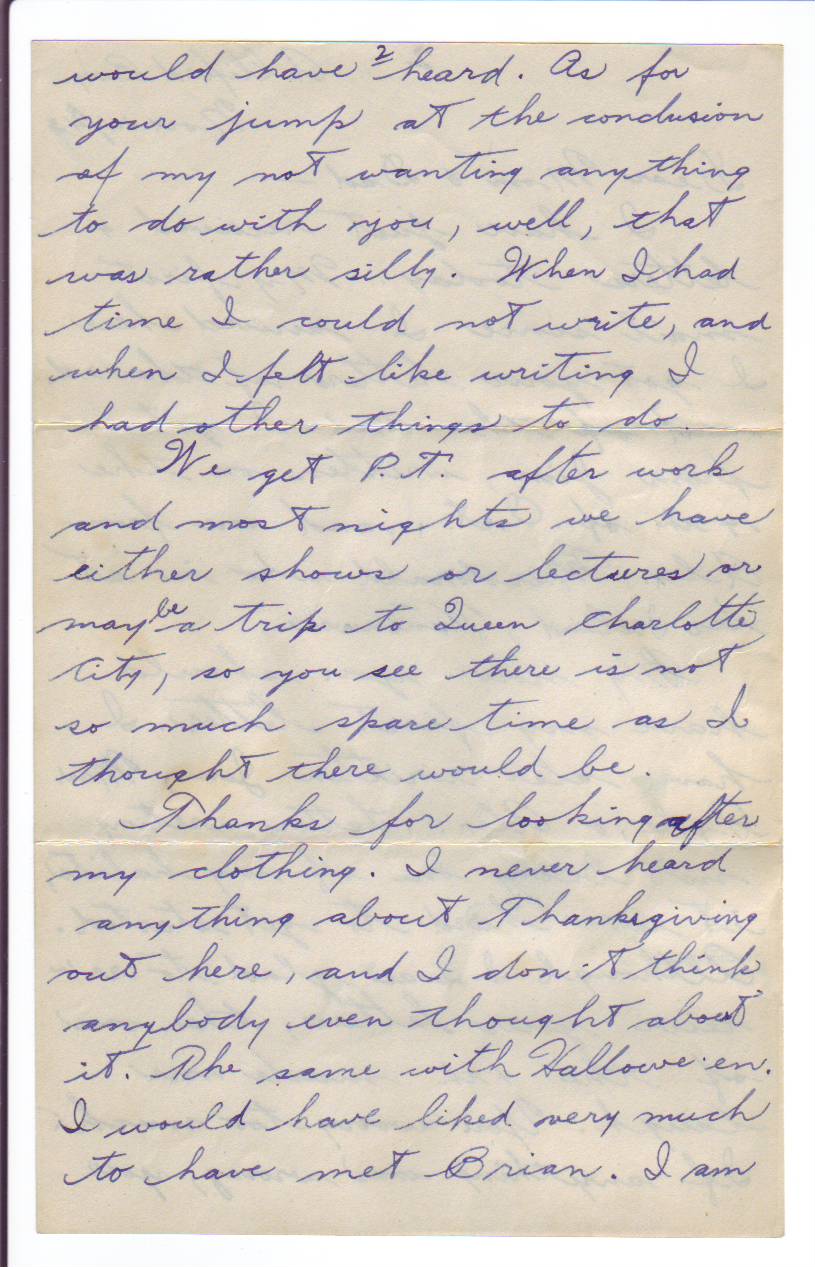 2
would have heard. As for
your jump at the conclusion
of my not wanting anything
to do with you, well, that
was rather silly. When I had
time I could not write, and
when I felt like writing I
had other things to do.
We get P.T. after work
and most nights we have
either shows or lectures or
maybe a trip to Queen Charlotte
City, so you see there is not
so much spare time as I
thought there would be.
Thanks for looking after
my clothing. I never heard
anything about Thanksgiving
out here, and I don't think
anybody even thought about
it. The same with Hallowe'en.
I would have liked very much
to have met Brian. I am